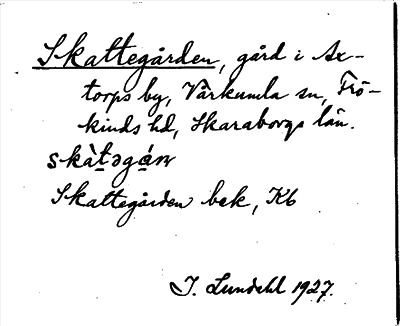 Skattegården, gård i Ax-
torps by, Vårkumla sn, Frö-
kinds hd, Skaraborgs län.
skàt̠əgá̠ɴ
Skattegården bek, Kb
I. Lundahl 1927.